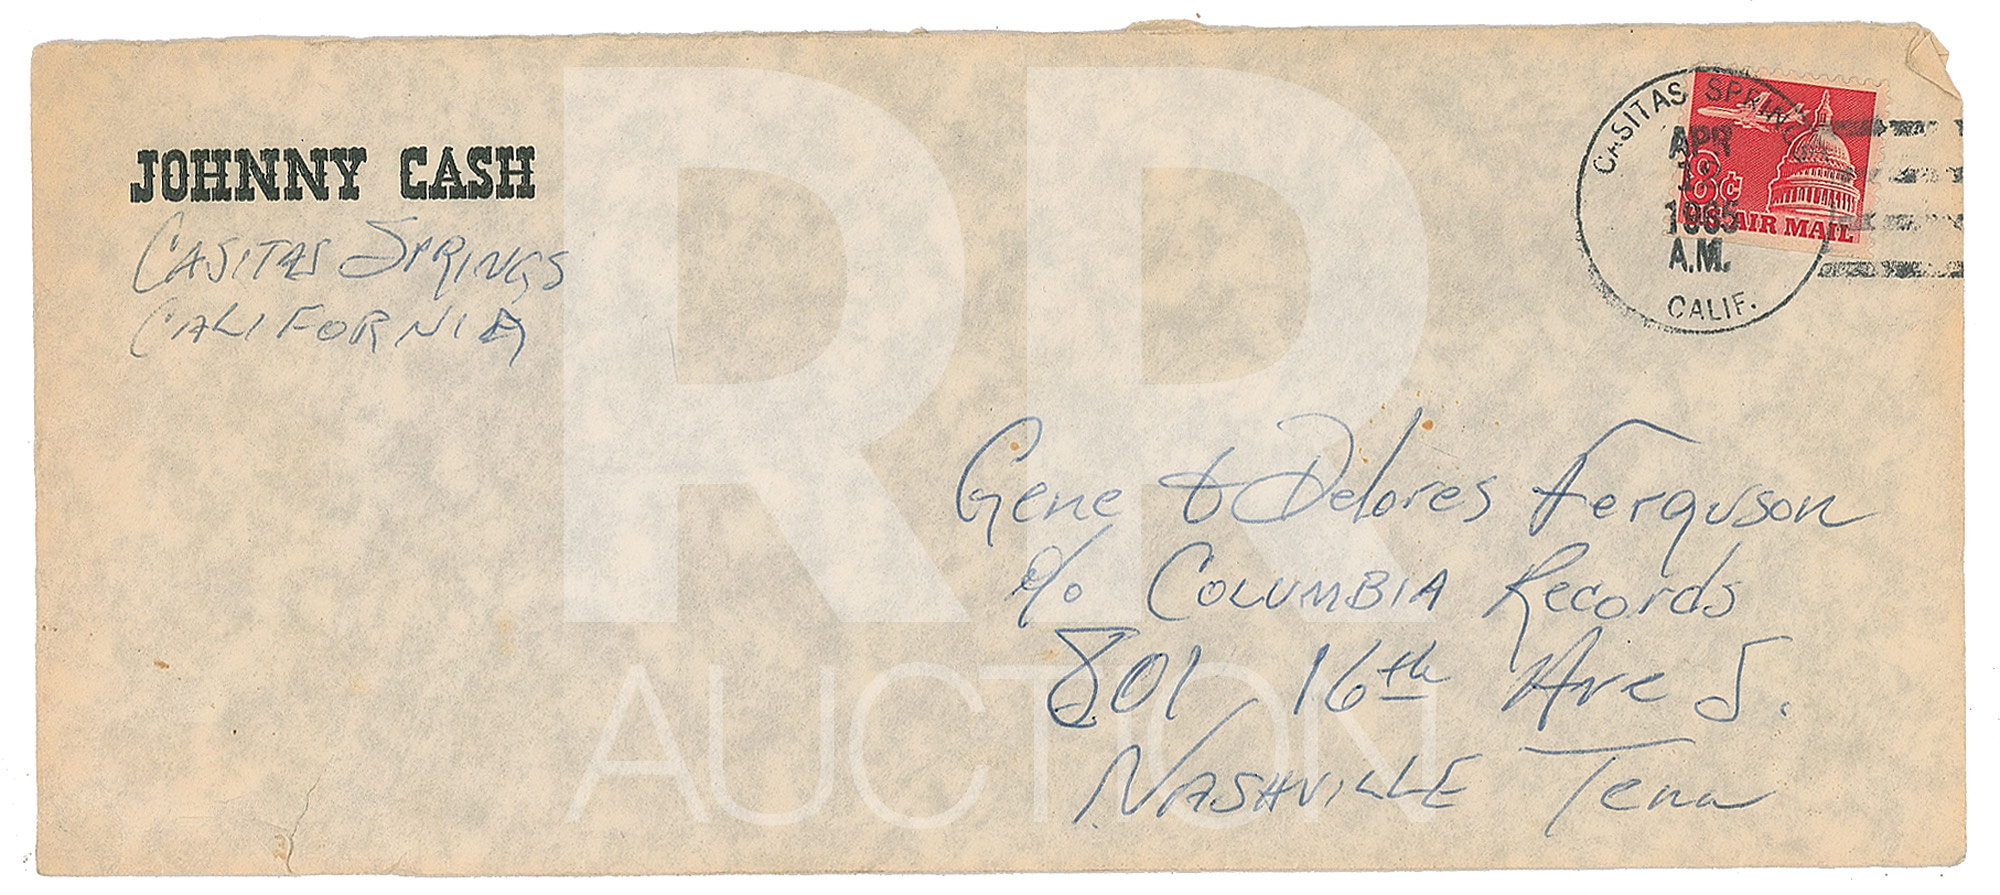 JOHNNY CASH
CASITAS SPRINGS
CALIFORNIA
CASITAS SPRINGS
APR
1965
A.M.
CALIF.
8¢
AIR MAIL
Gene & Delores Ferguson
c/o COLUMBIA Records
801 16th Ave S.
NASHVILLE Tenn
RR
AUCTION